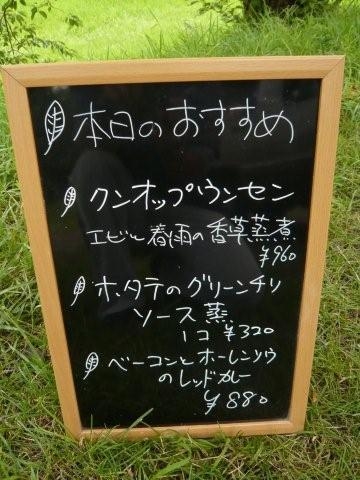 本日のおすすめ
クンオップウンセン
エビと春雨の香草蒸煮
¥960
ホタテのグリーンチリ
ソース蒸
1コ ¥320
ベーコンとホーレンソウ
のレッドカレー
¥880